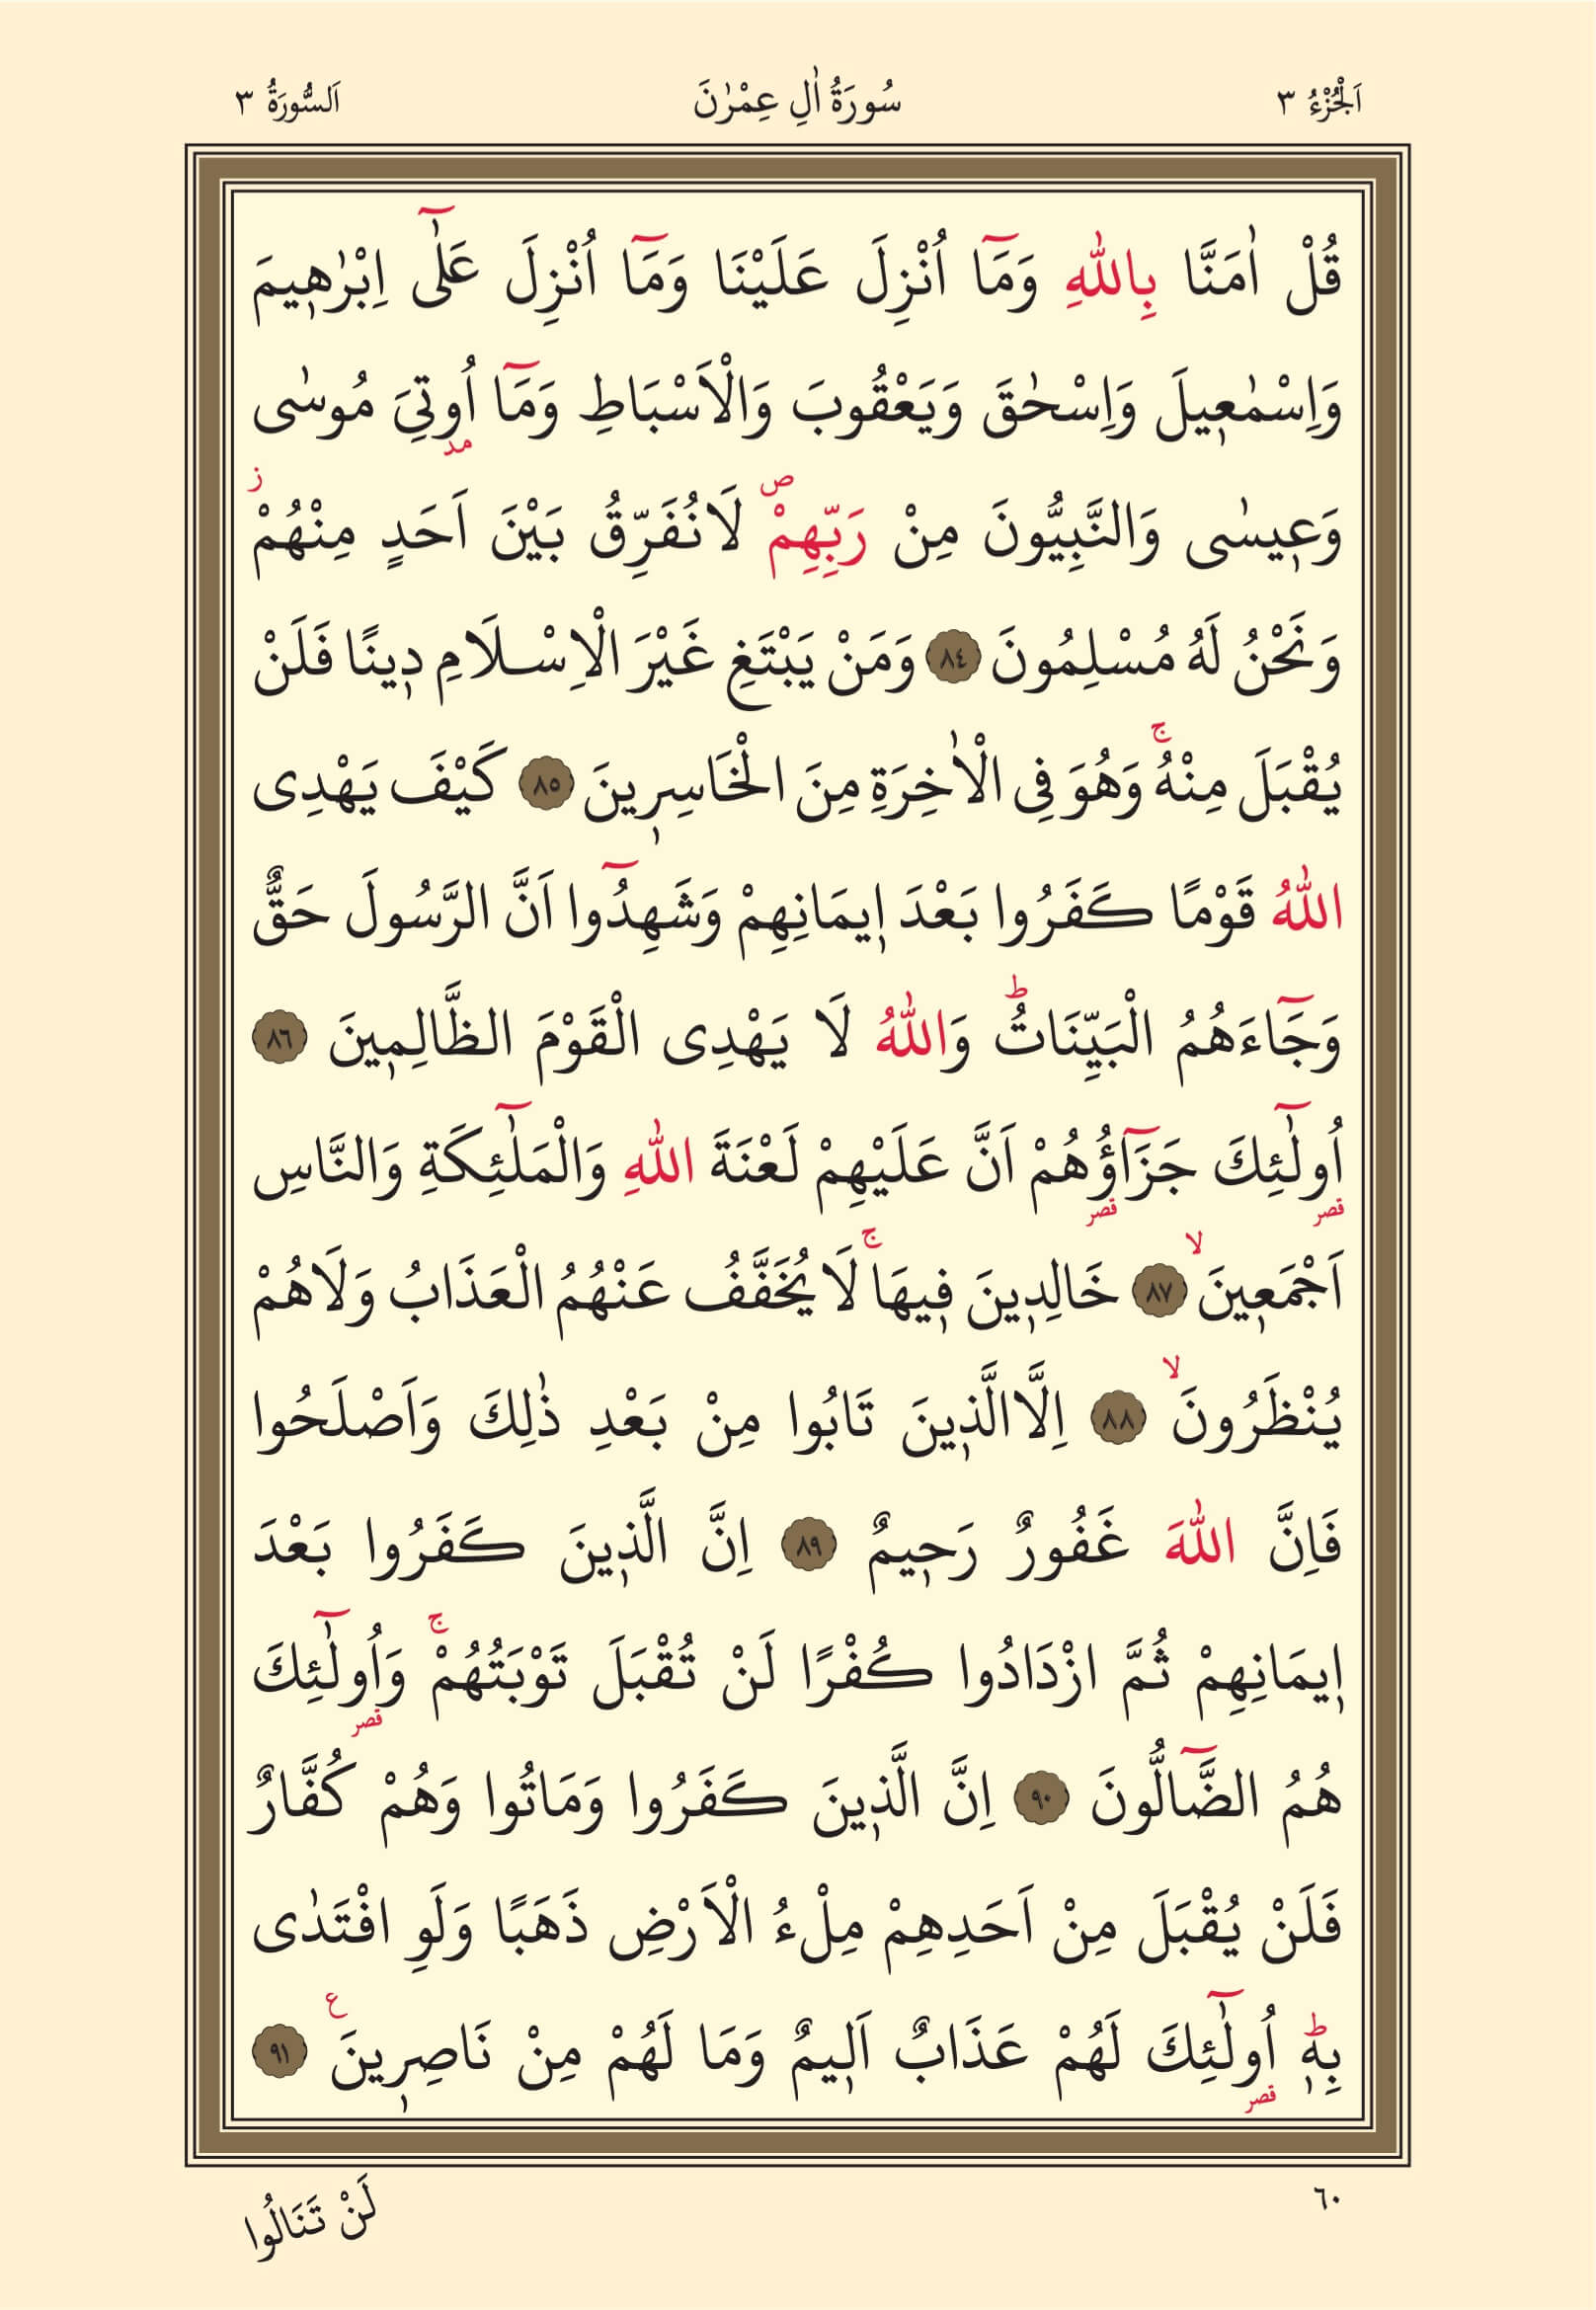 اَلْجُزْءُ ٣ سُورَةُ اٰلِ عِمْرٰنَ اَلسُّورَةُ ٣
قُلْ اٰمَنَّا بِاللّٰهِ وَمَٓا اُنْزِلَ عَلَيْنَا وَمَٓا اُنْزِلَ عَلٰٓى اِبْرٰه۪يمَ
وَاِسْمٰع۪يلَ وَاِسْحٰقَ وَيَعْقُوبَ وَالْاَسْبَاطِ وَمَٓا اُو۫تِيَ مُوسٰى
وَع۪يسٰى وَالنَّبِيُّونَ مِنْ رَبِّهِمْۖ لَا نُفَرِّقُ بَيْنَ اَحَدٍ مِنْهُمْۘ
وَنَحْنُ لَهُ مُسْلِمُونَ ﴿٨٤﴾ وَمَنْ يَبْتَغِ غَيْرَ الْاِسْلَامِ د۪ينًا فَلَنْ
يُقْبَلَ مِنْهُۚ وَهُوَ فِى الْاٰخِرَةِ مِنَ الْخَاسِر۪ينَ ﴿٨٥﴾ كَيْفَ يَهْدِى
اللّٰهُ قَوْمًا كَفَرُوا بَعْدَ ا۪يمَانِهِمْ وَشَهِدُٓوا اَنَّ الرَّسُولَ حَقٌّ
وَجَٓاءَهُمُ الْبَيِّنَاتُۜ وَاللّٰهُ لَا يَهْدِى الْقَوْمَ الظَّالِم۪ينَ ﴿٨٦﴾
اُو۬لٰٓئِكَ جَزَٓاؤُ۬هُمْ اَنَّ عَلَيْهِمْ لَعْنَةَ اللّٰهِ وَالْمَلٰٓئِكَةِ وَالنَّاسِ
اَجْمَع۪ينَۙ ﴿٨٧﴾ خَالِد۪ينَ ف۪يهَاۚ لَا يُخَفَّفُ عَنْهُمُ الْعَذَابُ وَلَا هُمْ
يُنْظَرُونَۙ ﴿٨٨﴾ اِلَّا الَّذ۪ينَ تَابُوا مِنْ بَعْدِ ذٰلِكَ وَاَصْلَحُوا
فَاِنَّ اللّٰهَ غَفُورٌ رَح۪يمٌ ﴿٨٩﴾ اِنَّ الَّذ۪ينَ كَفَرُوا بَعْدَ
ا۪يمَانِهِمْ ثُمَّ ازْدَادُوا كُفْرًا لَنْ تُقْبَلَ تَوْبَتُهُمْۚ وَاُو۬لٰٓئِكَ
هُمُ الضَّٓالُّونَ ﴿٩٠﴾ اِنَّ الَّذ۪ينَ كَفَرُوا وَمَاتُوا وَهُمْ كُفَّارٌ
فَلَنْ يُقْبَلَ مِنْ اَحَدِهِمْ مِلْءُ الْاَرْضِ ذَهَبًا وَلَوِ افْتَدٰى
بِه۪ۜ اُو۬لٰٓئِكَ لَهُمْ عَذَابٌ اَل۪يمٌ وَمَا لَهُمْ مِنْ نَاصِر۪ينَ۟ ﴿٩١﴾
٦٠ لَنْ تَنَالُوا